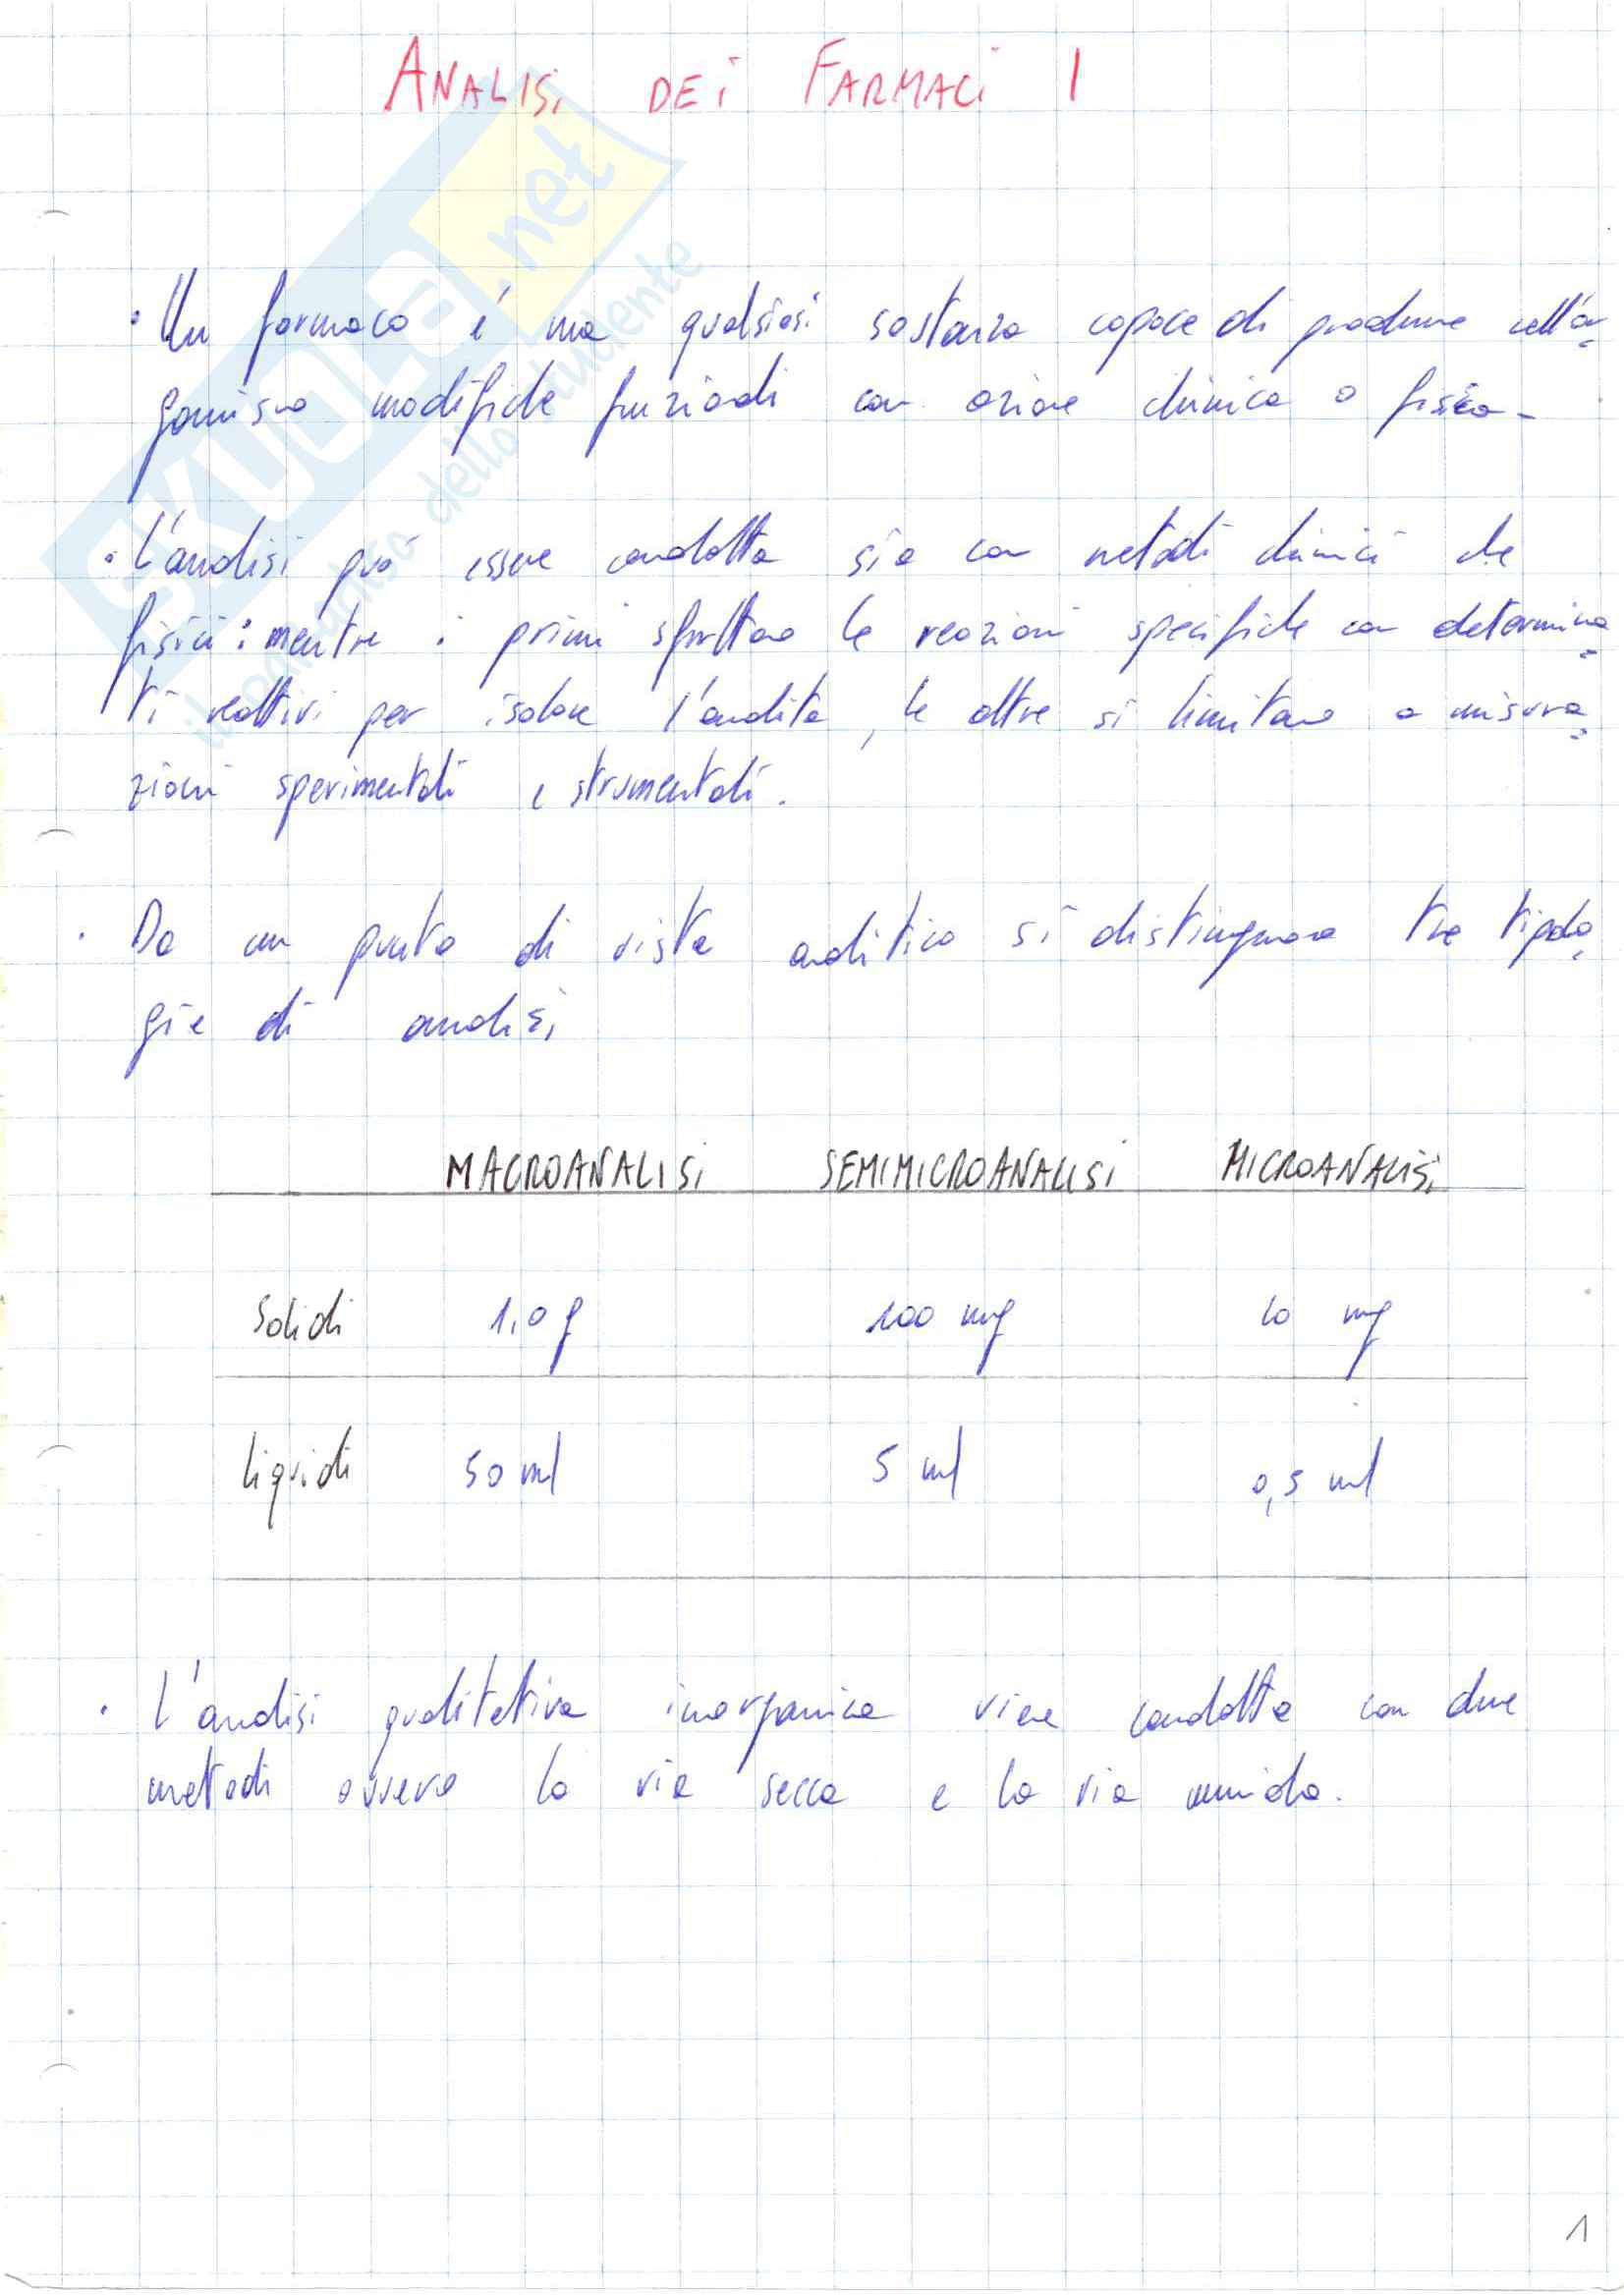 ANALISI DEI FARMACI 1
SKUOLA.net
il paradiso dello studente
· Un farmaco é una qualsiasi sostanza capace di produrre nell'or
ganismo modifiche funzionali con azione chimica o fisica.
· L'analisi può essere condotta sia con metodi chimici che
fisici: mentre i primi sfruttano le reazioni specifiche con determina
ti reattivi per isolare l'analita, le altre si limitano a misura
zioni sperimentali e strumentali.
· Da un punto di vista analitico si distinguono tre tipolo
gie di analisi
MACROANALISI SEMIMICROANALISI MICROANALISI
Solidi 1,0 g 100 mg 10 mg
liquidi 50 ml 5 ml 0,5 ml
· L'analisi qualitativa inorganica viene condotta con due
metodi ovvero la via secca e la via umida.
1